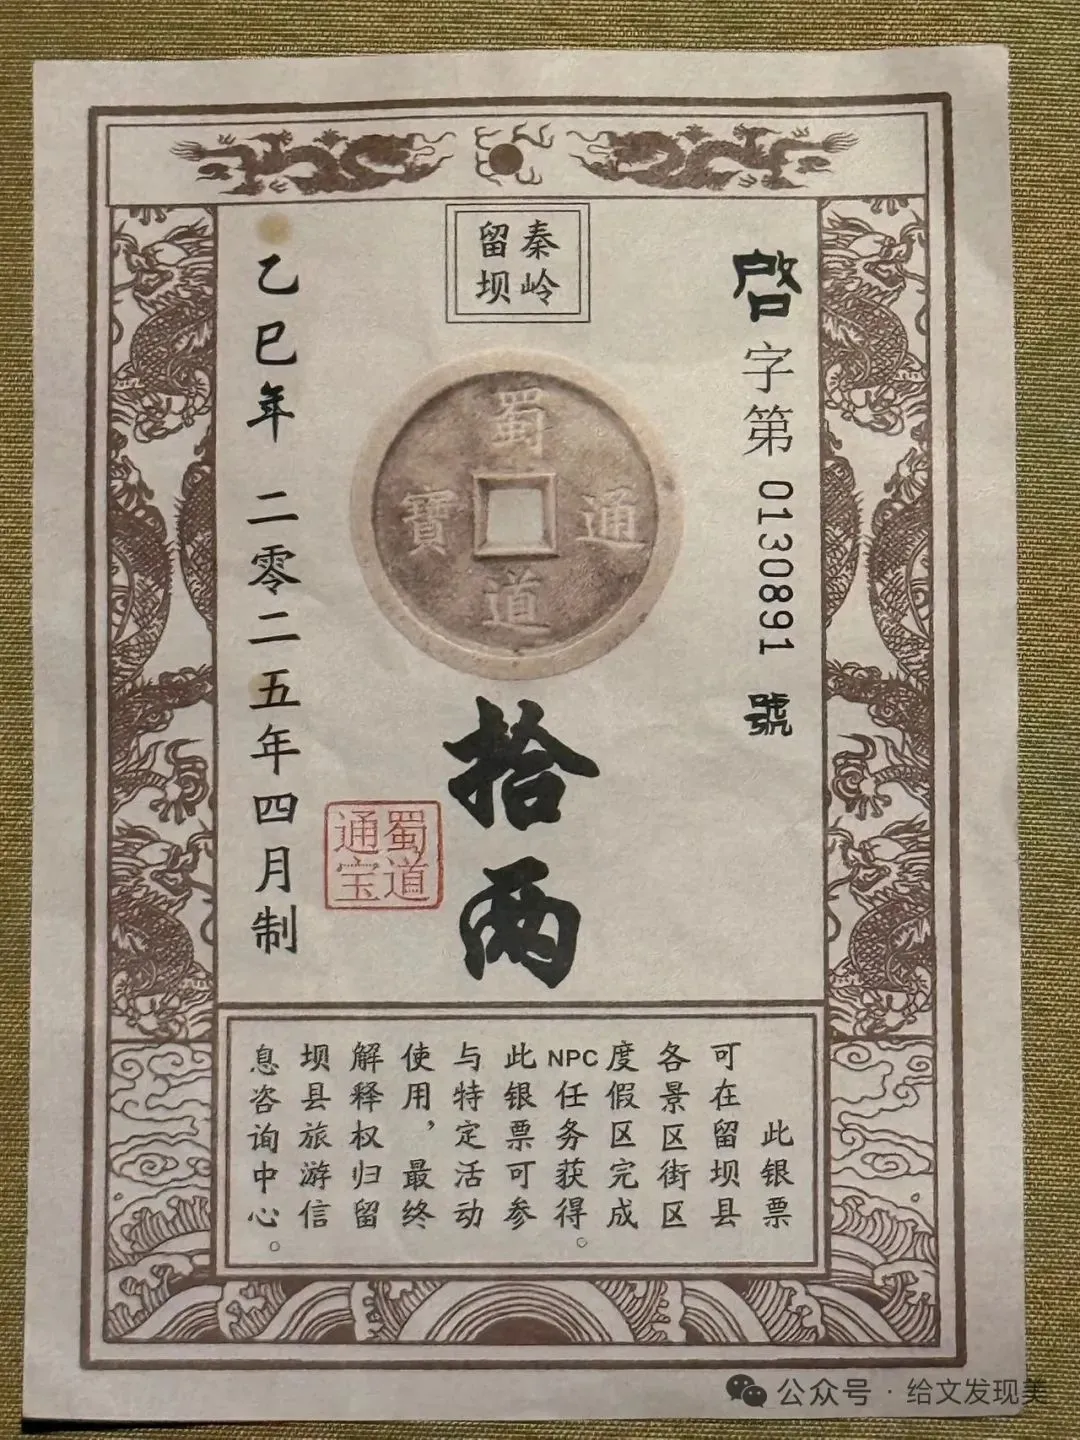 秦岭
留坝
啓字第0130891號
蜀道通寶
拾两
蜀道
通宝
乙巳年 二零二五年四月制
此银票
可在留坝县
各景区街区
度假区完成
NPC任务获得。
此银票可参
与特定活动
使用，最终
解释权归留
坝县旅游信
息咨询中心。
公众号·给文发现美